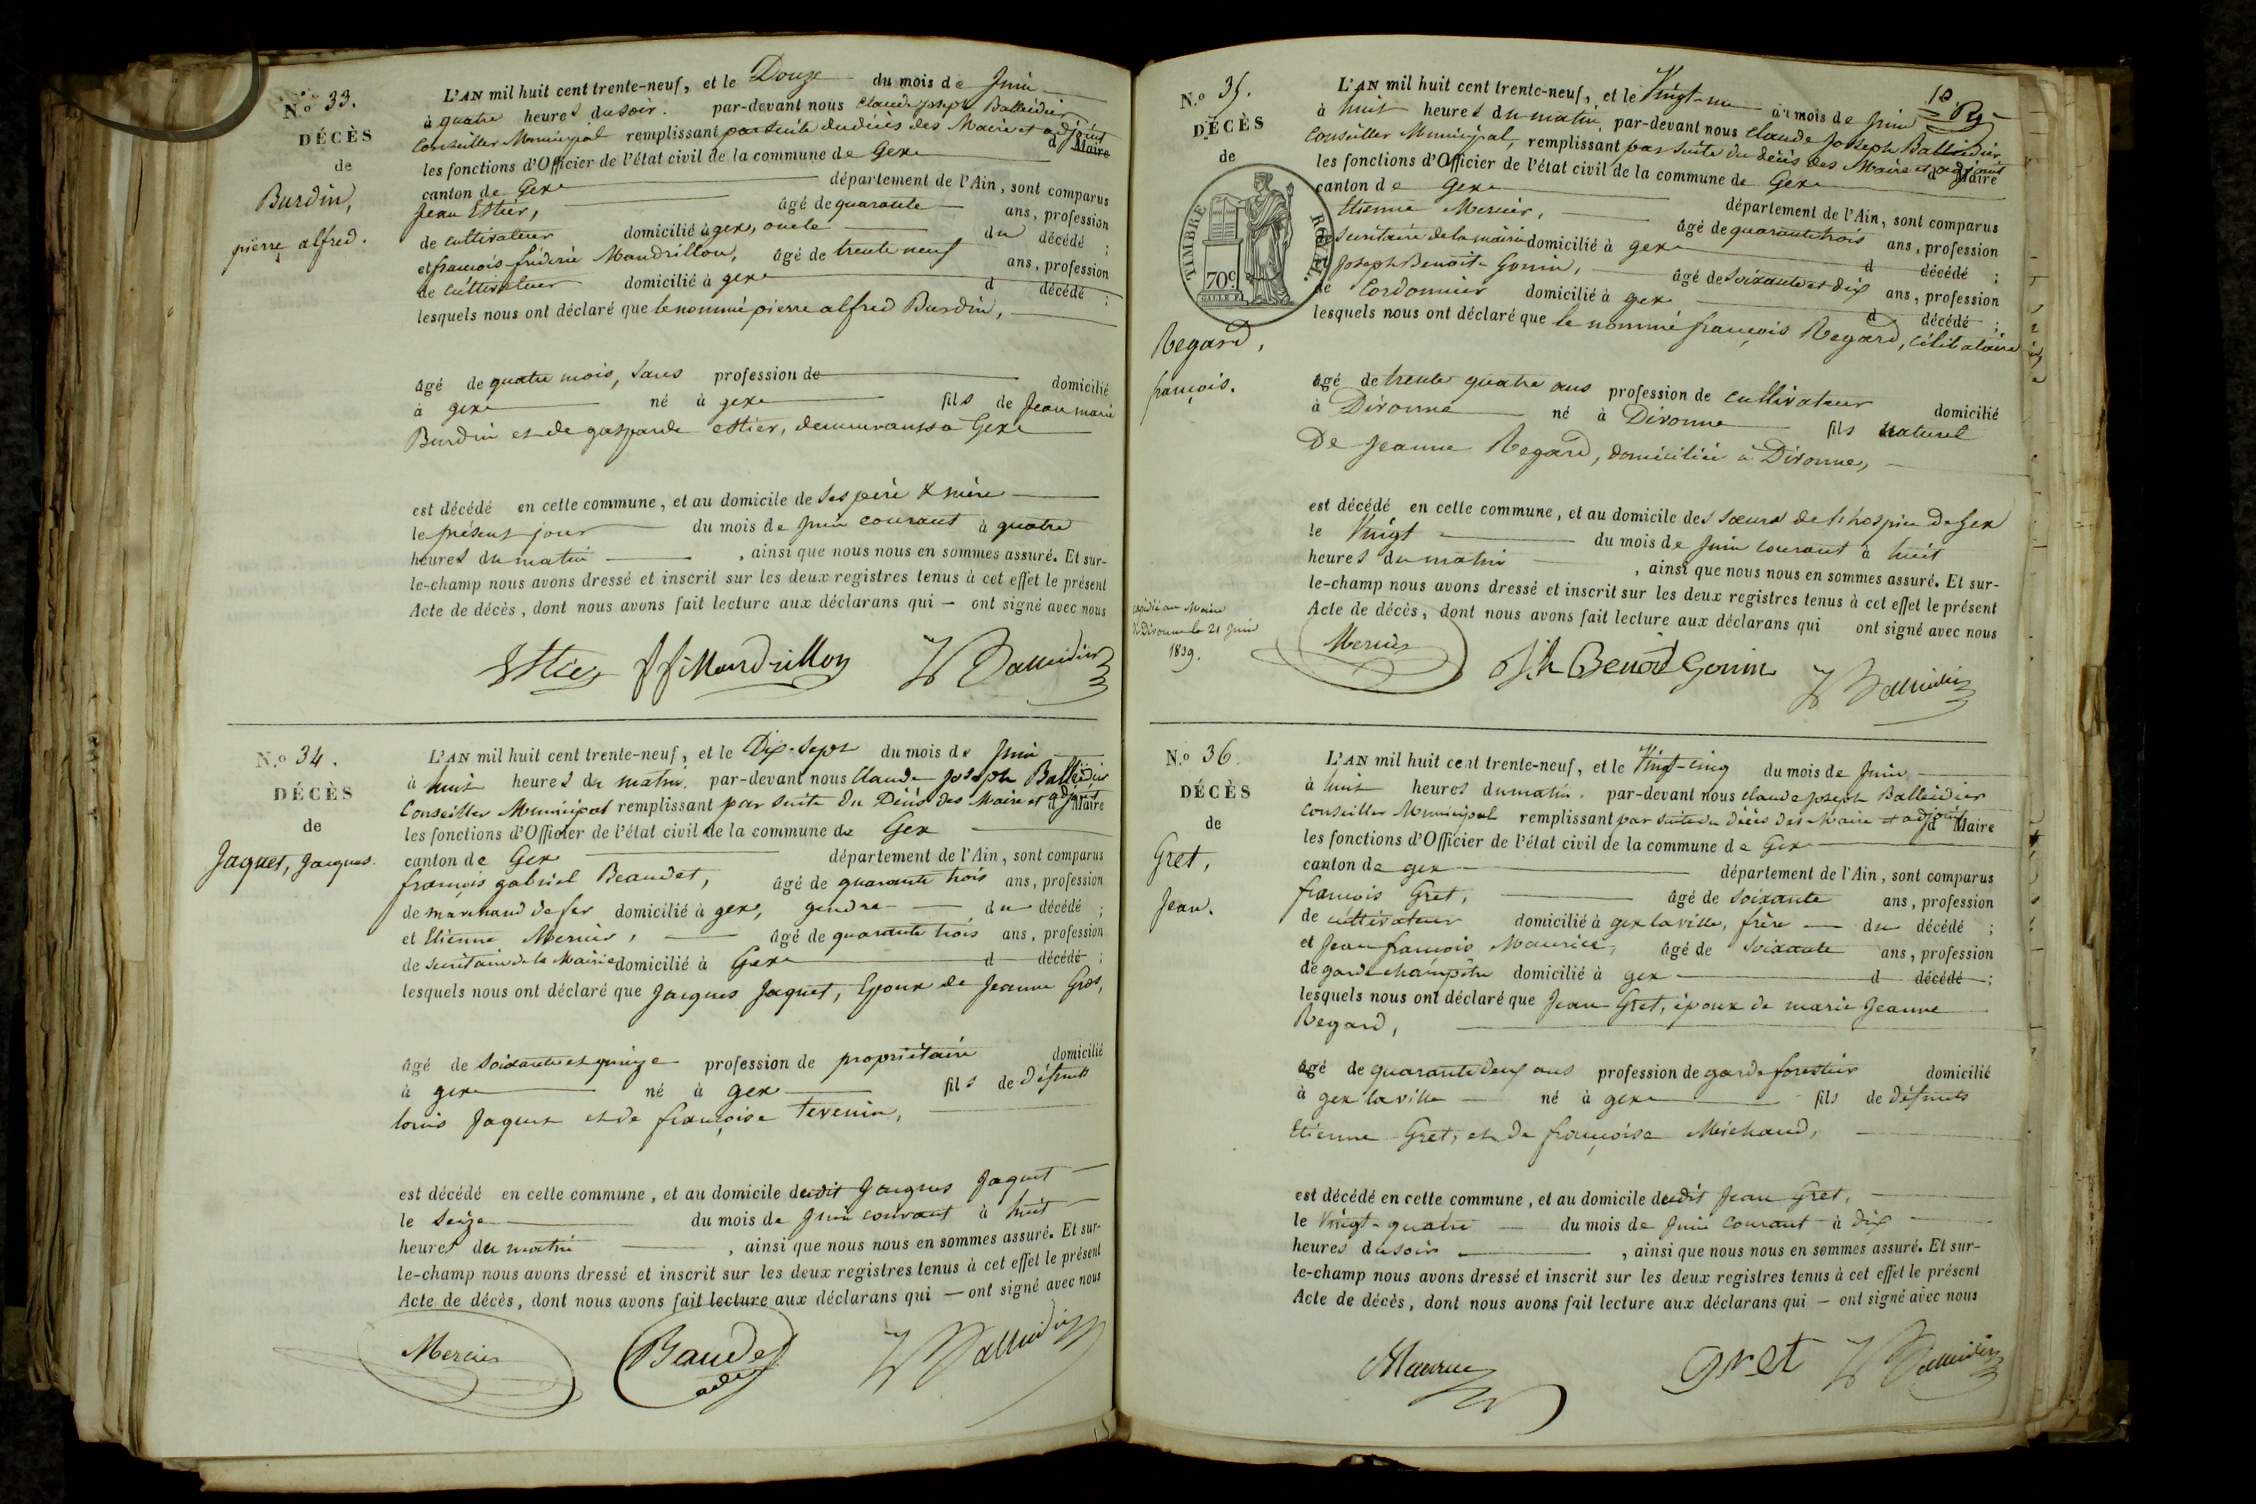 N.o 33.
DÉCÈS
de
Burdin,
pierre alfred.
L'AN mil huit cent trente-neuf, et le Douze du mois de Juin
à quatre heures du soir. par-devant nous Claude joseph Balleidier
Conseiller Municipal remplissant par suite du décès des Maire et adjoint d Maire
les fonctions d'Officier de l'état civil de la commune de Gex
canton de Gex département de l'Ain, sont comparus
Jean Estier, âgé de quarante ans, profession
de cultivateur domicilié à gex, oncle du décédé ;
et françois frédéric Mandrillon, âgé de trente neuf ans, profession
de cultivateur domicilié à gex d décédé ;
lesquels nous ont déclaré que le nommé pierre alfred Burdin,
âgé de quatre mois, sans profession de domicilié
à gex né à gex fils de Jean marie
Burdin et de gasparde estier, demeurants à Gex
est décédé en cette commune, et au domicile de ses père & mère
le présent jour du mois de juin courant à quatre
heures du matin , ainsi que nous nous en sommes assuré. Et sur-
le-champ nous avons dressé et inscrit sur les deux registres tenus à cet effet le présent
Acte de décès, dont nous avons fait lecture aux déclarans qui — ont signé avec nous
Estier ff Mandrillon Balleidier
N.o 34.
DÉCÈS
de
Jaquet, Jacques.
L'AN mil huit cent trente-neuf, et le Dix-Sept du mois de Juin
à huit heures du matin. par-devant nous Claude Joseph Balleidier
Conseiller Municipal remplissant par suite du Décès des Maire et adjoint d Maire
les fonctions d'Officier de l'état civil de la commune de Gex
canton de Gex département de l'Ain, sont comparus
françois gabriel Beaudet, âgé de quarante trois ans, profession
de marchand de fer domicilié à gex, gendre du décédé ;
et Etienne Mercier, âgé de quarante trois ans, profession
de secrétaire de la Mairie domicilié à Gex d décédé ;
lesquels nous ont déclaré que Jacques Jaquet, Epoux de Jeanne Gros,
âgé de soixante et quinze profession de propriétaire domicilié
à gex né à gex fils de défunts
louis Jaquet et de françoise tevenin,
est décédé en cette commune, et au domicile dudit Jacques Jaquet
le seize du mois de Juin courant à huit
heures du matin , ainsi que nous nous en sommes assuré. Et sur-
le-champ nous avons dressé et inscrit sur les deux registres tenus à cet effet le présent
Acte de décès, dont nous avons fait lecture aux déclarans qui — ont signé avec nous
Mercier Baudet Balleidier
N.o 35.
DÉCÈS
de
TIMBRE ROYAL.
70c.
Regard,
françois.
expédié au Maire
de Divonne le 21 Juin
1839.
L'AN mil huit cent trente-neuf, et le Vingt-un du mois de Juin
à huit heures du matin, par-devant nous Claude Joseph Balleidier
Conseiller Municipal, remplissant par suite du décès des Maire et adjoint d Maire
les fonctions d'Officier de l'état civil de la commune de Gex
canton de gex département de l'Ain, sont comparus
Etienne Mercier, âgé de quarante trois ans, profession
de secrétaire de la mairie domicilié à gex d décédé ;
et Joseph Benoit Gonin, âgé de soixante et dix ans, profession
de Cordonnier domicilié à gex d décédé ;
lesquels nous ont déclaré que le nommé françois Regard, célibataire
âgé de trente quatre ans profession de cultivateur domicilié
à Divonne né à Divonne fils naturel
De Jeanne Regard, domiciliée à Divonne,
est décédé en cette commune, et au domicile des sœurs de l'hospice de Gex
le Vingt du mois de Juin courant à huit
heures du matin , ainsi que nous nous en sommes assuré. Et sur-
le-champ nous avons dressé et inscrit sur les deux registres tenus à cet effet le présent
Acte de décès, dont nous avons fait lecture aux déclarans qui ont signé avec nous
Mercier Jh Benoit Gonin Balleidier
N.o 36.
DÉCÈS
de
Gret,
Jean.
L'AN mil huit cent trente-neuf, et le Vingt-cinq du mois de Juin
à huit heures du matin. par-devant nous Claude Joseph Balleidier
Conseiller Municipal remplissant par suite du décès des Maire et adjoint d Maire
les fonctions d'Officier de l'état civil de la commune de Gex
canton de gex département de l'Ain, sont comparus
françois Gret, âgé de soixante ans, profession
de cultivateur domicilié à gex la ville, frère du décédé ;
et Jean françois Maurice, âgé de soixante ans, profession
de garde champêtre domicilié à gex d décédé ;
lesquels nous ont déclaré que Jean Gret, époux de marie Jeanne
Regard,
âgé de quarante deux ans profession de garde forestier domicilié
à gex la ville né à gex fils de défunts
Etienne Gret, et de françoise Michaud,
est décédé en cette commune, et au domicile dudit Jean Gret,
le Vingt-quatre du mois de Juin courant à dix
heures du soir , ainsi que nous nous en sommes assuré. Et sur-
le-champ nous avons dressé et inscrit sur les deux registres tenus à cet effet le présent
Acte de décès, dont nous avons fait lecture aux déclarans qui — ont signé avec nous
Maurice gret Balleidier